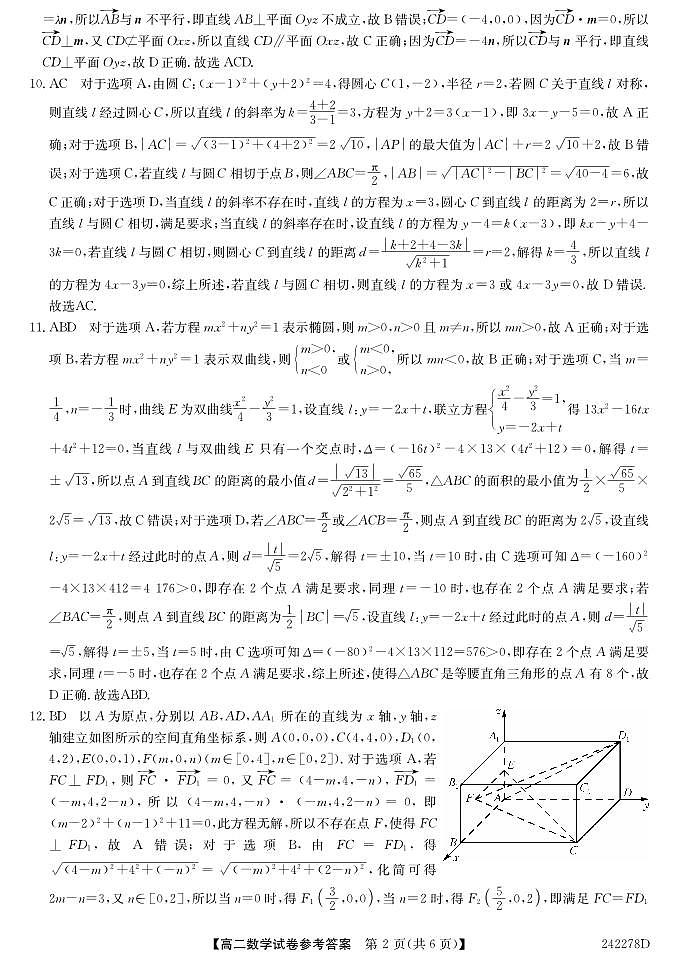 =λn,所以AB与 n 不平行,即直线 AB⊥平面 Oyz 不成立,故 B 错误;CD=(-4,0,0),因为CD·m=0,所以
CD⊥m,又 CD⊄平面 Oxz,所以直线 CD∥平面 Oxz,故 C 正确;因为CD=-4n,所以CD与 n 平行,即直线
CD⊥平面 Oyz,故 D 正确. 故选 ACD.
10. AC 对于选项 A,由圆 C:(x-1)²+(y+2)²=4,得圆心 C(1,-2),半径 r=2,若圆 C 关于直线 l 对称,
则直线 l 经过圆心 C,所以直线 l 的斜率为 k=(4+2)/(3-1)=3,方程为 y+2=3(x-1),即 3x-y-5=0,故 A 正
确;对于选项 B,|AC|=√((3-1)²+(4+2)²)=2√10,|AP|的最大值为|AC|+r=2√10+2,故 B 错
误;对于选项 C,若直线 l 与圆 C 相切于点 B,则∠ABC=π/2,|AB|=√(|AC|²-|BC|²)=√(40-4)=6,故
C 正确;对于选项 D,当直线 l 的斜率不存在时,直线 l 的方程为 x=3,圆心 C 到直线 l 的距离为 2=r,所以
直线 l 与圆 C 相切,满足要求;当直线 l 的斜率存在时,设直线 l 的方程为 y-4=k(x-3),即 kx-y+4-
3k=0,若直线 l 与圆 C 相切,则圆心 C 到直线 l 的距离 d=|k+2+4-3k|/√(k²+1)=r=2,解得 k=4/3,所以直线 l
的方程为 4x-3y=0,综上所述,若直线 l 与圆 C 相切,则直线 l 的方程为 x=3 或 4x-3y=0,故 D 错误.
故选AC.
11. ABD 对于选项 A,若方程 mx²+ny²=1 表示椭圆,则 m>0,n>0 且 m≠n,所以 mn>0,故 A 正确;对于选
项 B,若方程 mx²+ny²=1 表示双曲线,则{m>0, n<0 或{m<0, n>0, 所以 mn<0,故 B 正确;对于选项 C,当 m=
1/4,n=-1/3时,曲线 E 为双曲线x²/4-y²/3=1,设直线 l:y=-2x+t,联立方程{x²/4-y²/3=1, y=-2x+t 得 13x²-16tx
+4t²+12=0,当直线 l 与双曲线 E 只有一个交点时,Δ=(-16t)²-4×13×(4t²+12)=0,解得 t=
±√13,所以点 A 到直线 BC 的距离的最小值 d=|√13|/√(2²+1²)=√65/5,△ABC 的面积的最小值为1/2×√65/5×
2√5=√13,故 C 错误;对于选项 D,若∠ABC=π/2或∠ACB=π/2,则点 A 到直线 BC 的距离为 2√5,设直线
l:y=-2x+t 经过此时的点 A,则 d=|t|/√5=2√5,解得 t=±10,当 t=10 时,由 C 选项可知 Δ=(-160)²
-4×13×412=4 176>0,即存在 2 个点 A 满足要求,同理 t=-10 时,也存在 2 个点 A 满足要求;若
∠BAC=π/2,则点 A 到直线 BC 的距离为1/2|BC|=√5,设直线 l:y=-2x+t 经过此时的点 A,则 d=|t|/√5
=√5,解得 t=±5,当 t=5 时,由 C 选项可知 Δ=(-80)²-4×13×112=576>0,即存在 2 个点 A 满足要
求,同理 t=-5 时,也存在 2 个点 A 满足要求,综上所述,使得△ABC 是等腰直角三角形的点 A 有 8 个,故
D 正确. 故选ABD.
12. BD 以 A 为原点,分别以 AB,AD,AA₁ 所在的直线为 x 轴,y 轴,z
轴建立如图所示的空间直角坐标系,则 A(0,0,0),C(4,4,0),D₁(0,
4,2),E(0,0,1),F(m,0,n)(m∈[0,4],n∈[0,2]). 对于选项 A,若
FC⊥FD₁,则 FC·FD₁=0,又 FC=(4-m,4,-n),FD₁=
(-m,4,2-n),所以(4-m,4,-n)·(-m,4,2-n)=0,即
(m-2)²+(n-1)²+11=0,此方程无解,所以不存在点 F,使得 FC
⊥FD₁,故 A 错误;对于选项 B,由 FC=FD₁,得
√((4-m)²+4²+(-n)²)=√((-m)²+4²+(2-n)²),化简可得
2m-n=3,又 n∈[0,2],所以当 n=0 时,得 F₁(3/2,0,0),当 n=2 时,得 F₂(5/2,0,2),即满足 FC=FD₁
z
A₁
D₁
E
B₁
C₁
F
A
D
y
B
C
x
【高二数学试卷参考答案 第 2 页(共 6 页)】
242278D